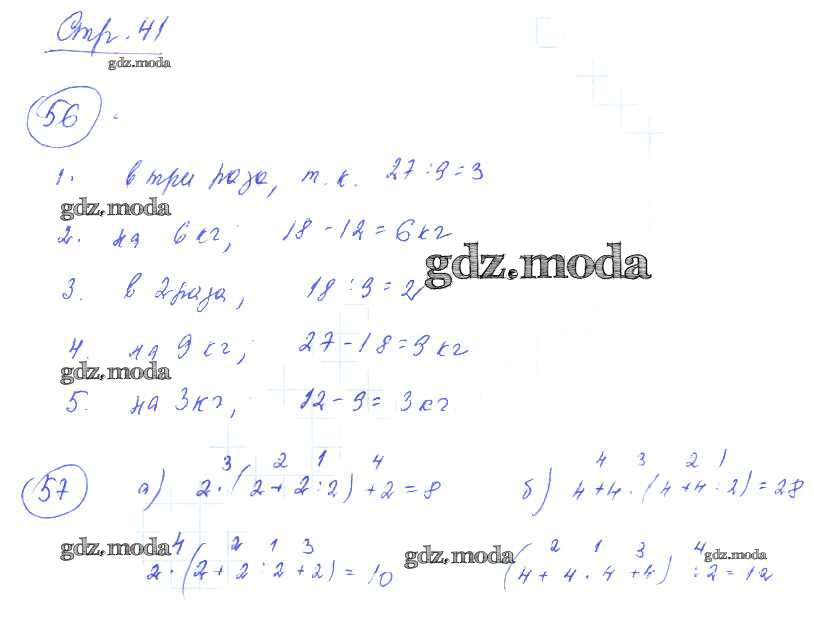 Стр. 41
gdz.moda
56
1. в три раза, т.к. 27 : 9 = 3
gdz.moda
2. на 6 кг; 18 - 12 = 6 кг
gdz.moda
3. в 2 раза, 18 : 9 = 2
4. на 9 кг; 27 - 18 = 9 кг
gdz.moda
5. на 3 кг, 12 - 9 = 3 кг
3 2 1 4
57 а) 2 · (2 + 2 : 2) + 2 = 8
4 3 2 1
б) 4 + 4 · (4 + 4 : 2) = 28
gdz.moda
4 2 1 3
2 · (2 + 2 : 2 + 2) = 10
gdz.moda
2 1 3 4
gdz.moda
(4 + 4 · 4 + 4) : 2 = 12